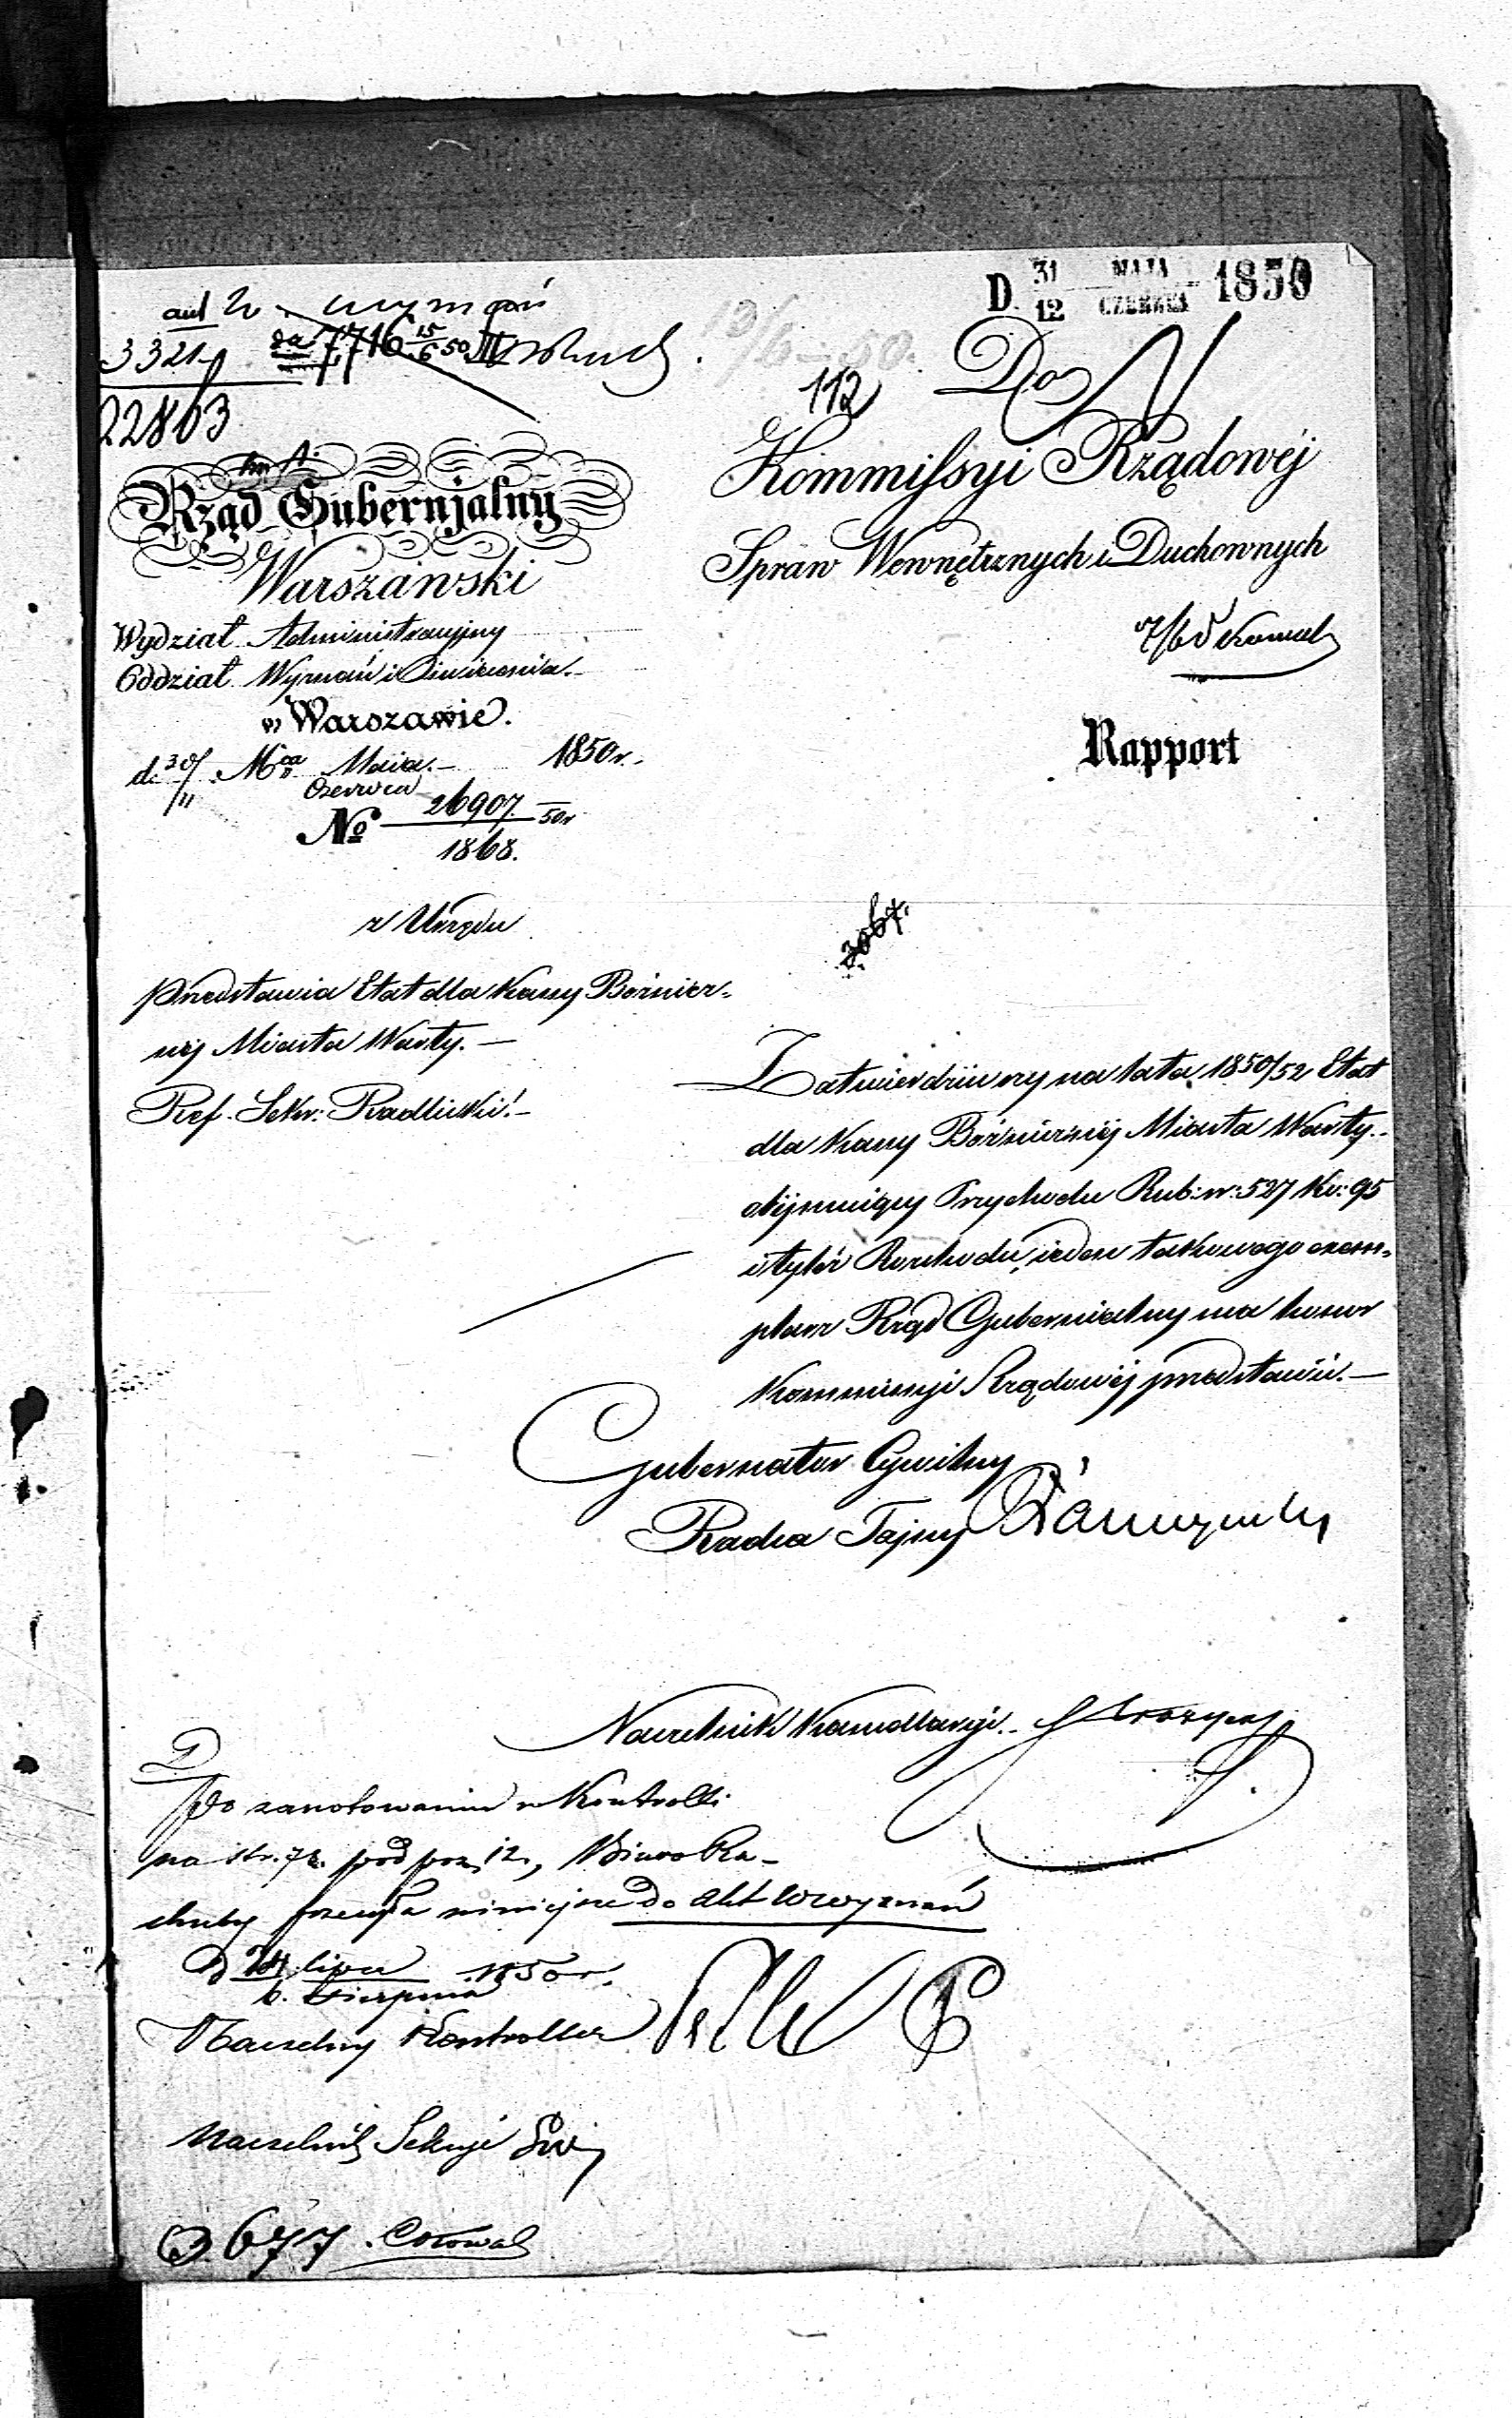 D. 31/12 MAJA/CZERWCA 1850
akt W. wyznań
3321
22863
112
Do
Kommissyi Rządowéj
Spraw Wewnętrznych i Duchownych
Rząd Gubernjalny
Warszawski
Wydział Administracyjny
Oddział Wyznań i
w Warszawie.
d. 30/11 Mca Maia/Czerwca 1850 r.
No 26907/1868. 50r
Rapport
z Urzędu
przedstawia Etat dla Kassy Bożnicz-
nej Miasta Warty. —
Ref. Sekr: Radlicki. —
3067.
Zatwierdzony na lata 1850/52 Etat
dla Kassy Bożnicznéj Miasta Warty
obejmuiący Przychodu Rub: sr: 527 Ko: 95
i tyleż Rozchodu, ieden takowego exem-
plarz Rząd Gubernialny ma honor
Kommissyi Rządowéj przedstawić. —
Gubernator Cywilny
Radca Tajny
Naczelnik Kancellaryi
Po zanotowaniu w Kontrolli
na str. 72. pod poz. 12, Biuro Ra-
chuby przesyła niniejsze do akt W wyznań
d 24 lipca/6. Sierpnia 1850 r.
Naczelny Kontroller
Naczelnik Sekcyi
677